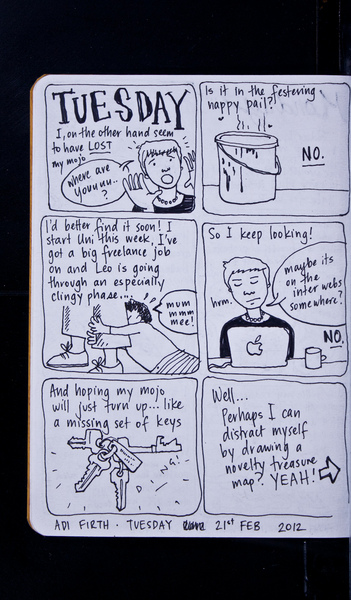 TUESDAY
I, on the other hand seem
to have LOST
my mojo
where are
youuuu..
?
Is it in the festering
nappy pail?!
NO.
I'd better find it soon! I
start Uni this week, I've
got a big freelance job
on and Leo is going
through an especially
clingy phase...
mum
mmm
mee!
So I keep looking!
maybe its
on the
inter webs
somewhere?
hrm.
NO.
And hoping my mojo
will just turn up... like
a missing set of keys
DING!
Well...
Perhaps I can
distract myself
by drawing a
novelty treasure
map? YEAH!
ADI FIRTH · TUESDAY 21st FEB 2012